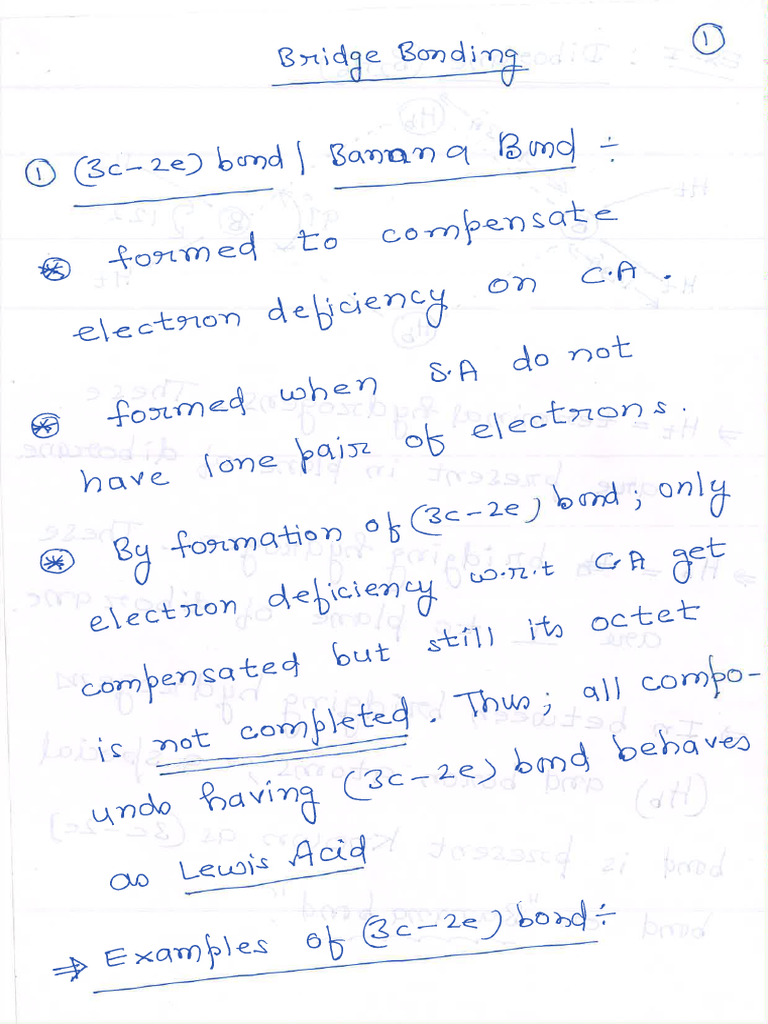 ①
Bridge Bonding
① (3c-2e) bond | Banana Bond ÷
* formed to compensate
electron deficiency on C.A.
* formed when S.A do not
have lone pair of electrons.
* By formation of (3c-2e) bond; only
electron deficiency w.r.t C.A get
compensated but still its octet
is not completed. Thus; all compo-
unds having (3c-2e) bond behaves
as Lewis Acid
⇒ Examples of (3c-2e) bond ÷